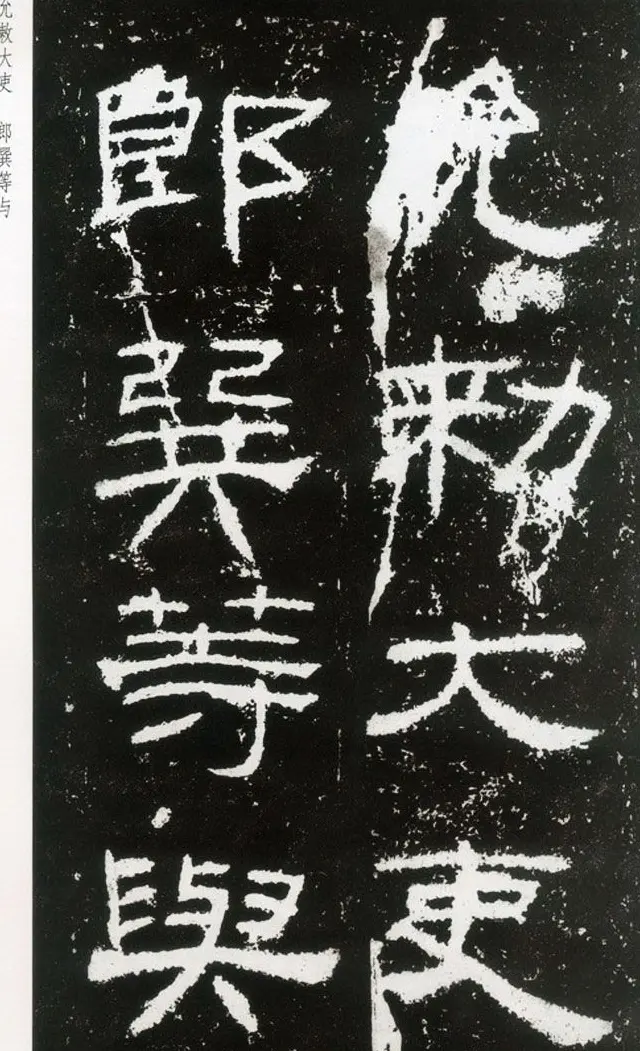 允勑大吏
郎巽等與
允敕大吏　郎巽等与